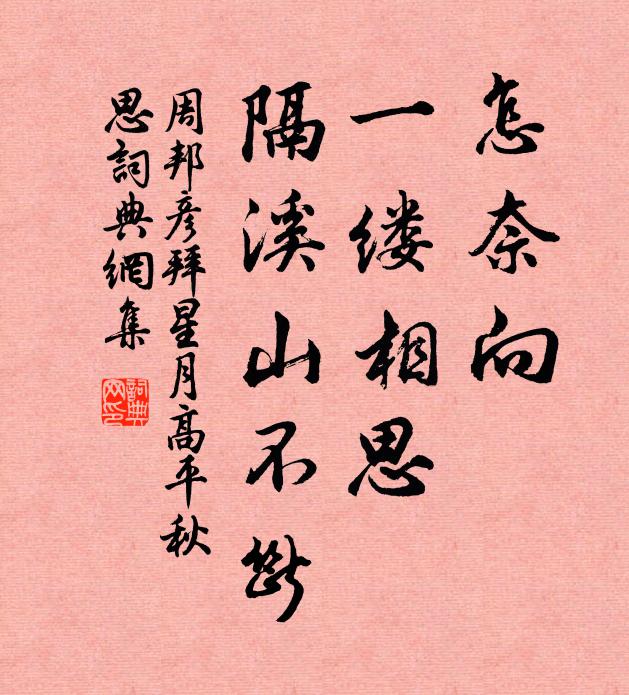 怎奈向
一缕相思
隔溪山不斷
周邦彦拜星月高平秋
思詞典網集
詞典
网印